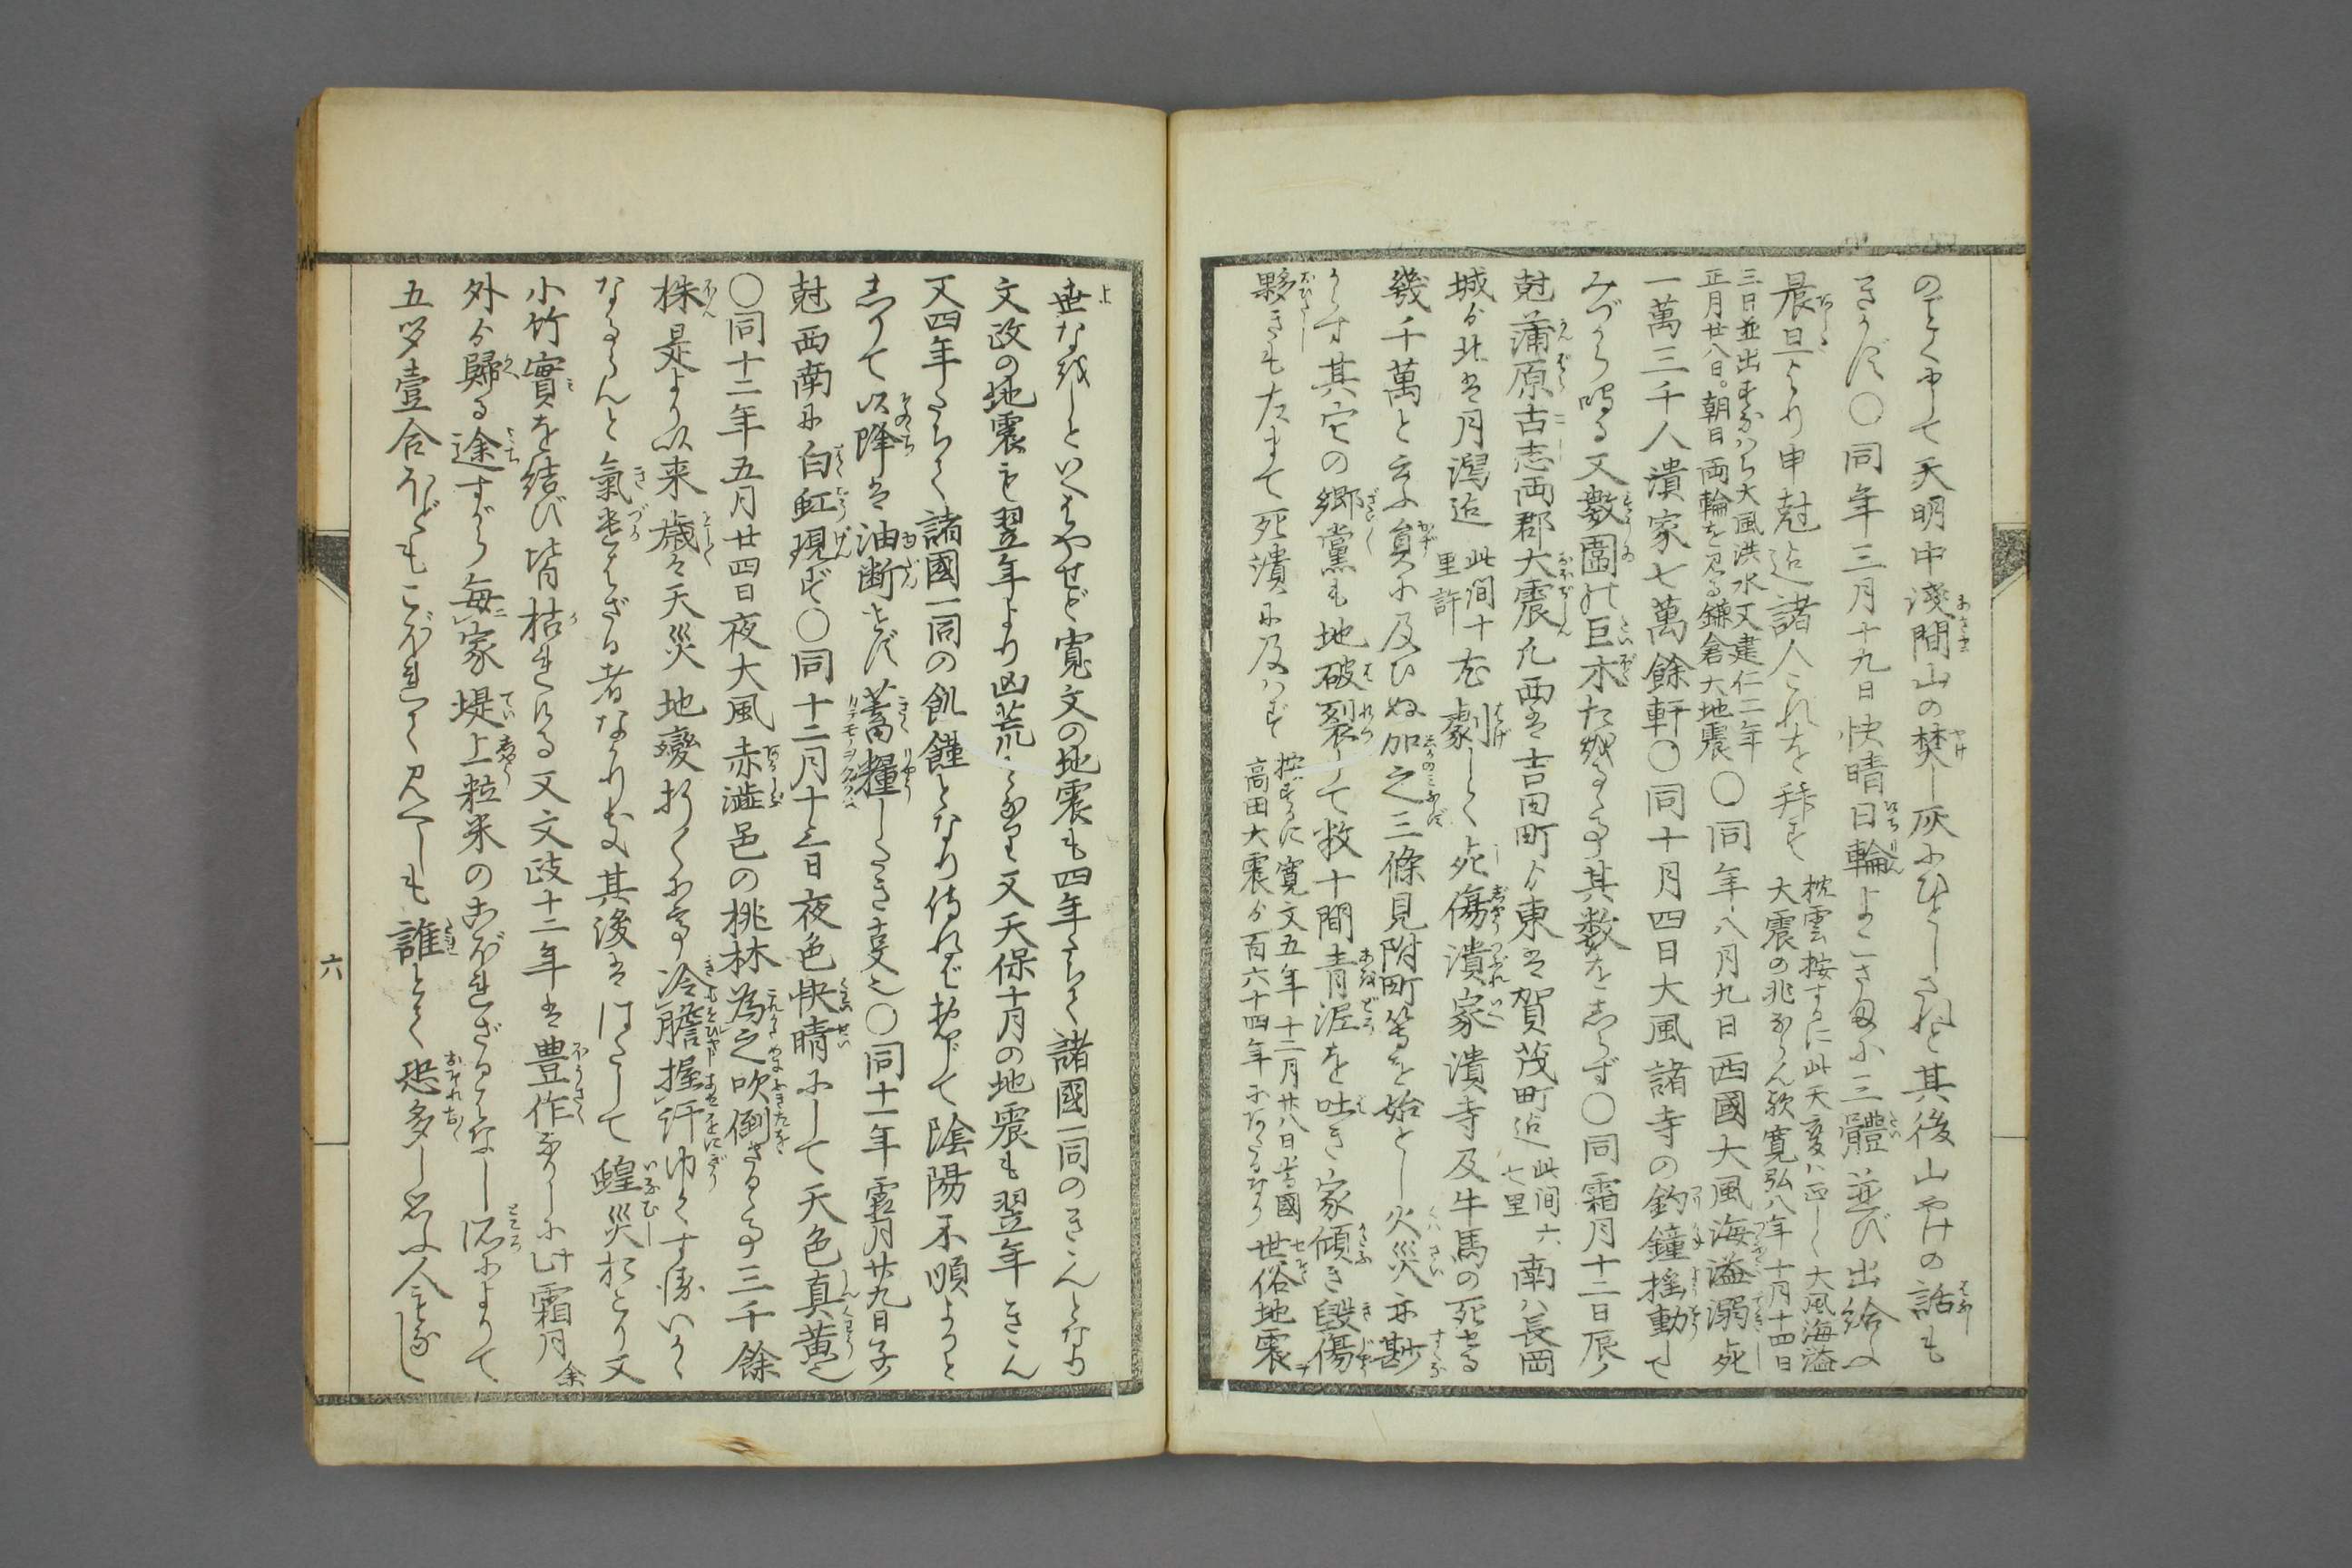 のごとくにて天明中淺間山の焚し灰にひとしされど其後山やけの話も
きかず〇同年三月十九日快晴日輪よこさまに三體並び出給ふ
晨旦より申尅迄諸人これを拜す
枕雲按するに此天変ハ正しく大風海溢
大震の兆ならん歟寛弘八年十月十四日
三日並出すなハち大風洪水又建仁二年
正月廿八日。朝日両輪を見る鎌倉大地震
〇同年八月九日西國大風海溢溺死
一萬三千人潰家七萬餘軒〇同十月四日大風諸寺の釣鐘揺動して
みづから鳴る又數圍の巨木たほるゝ事其数をしらず〇同霜月十二日辰ノ
尅蒲原古志両郡大震凡西は吉田町ゟ東は賀茂町迄
此间六
七里
南ハ長岡
城ゟ北は月潟迄
此间十
里許
尤劇しく死傷潰家潰寺及牛馬の死する
幾千萬と云ふ員に及ひぬ加之三條見附町等を始とし火災亦尠
からす其空の郷黨も地破裂して数十間青泥を吐き家傾き毀傷
夥きもたまて死潰に及ハず
按ずるに寛文五年十二月廿八日当國
高田大震ゟ百六十四年にあたるなり
世俗地震
世なほしといへはやせど寛文の地震も四年うちく諸國一同のきゝんとなり
文政の地震も翌年より凶荒となり又天保十月の地震も翌年きゝん
又四年うちく諸國一同の飢饉となり侍れば都て陰陽不順ようと
しりて以降は油断せず蓄糧したき事之〇同十一年霜月廿九日子ノ
尅西南に白虹現ず〇同十二月十三日夜色快晴にして天色真黄之
〇同十二年五月廿四日夜大風赤澁邑の桃林為之吹倒さるゝ事三千餘
株是より以来歳々天災地變打つゞき冷膽握汗
なるらんと氣遣ハざる者なかりき其後はたして蝗災おこり又
小竹實を結び皆枯きける又文政十二年は豊作なりしに此霜月余
外ゟ歸る途すがら毎家堤上粒米のこぼれざるはなし所によりて
五夕壹合ほどもこぼれてく見へしも誰とく恐多しと云人もなし
六